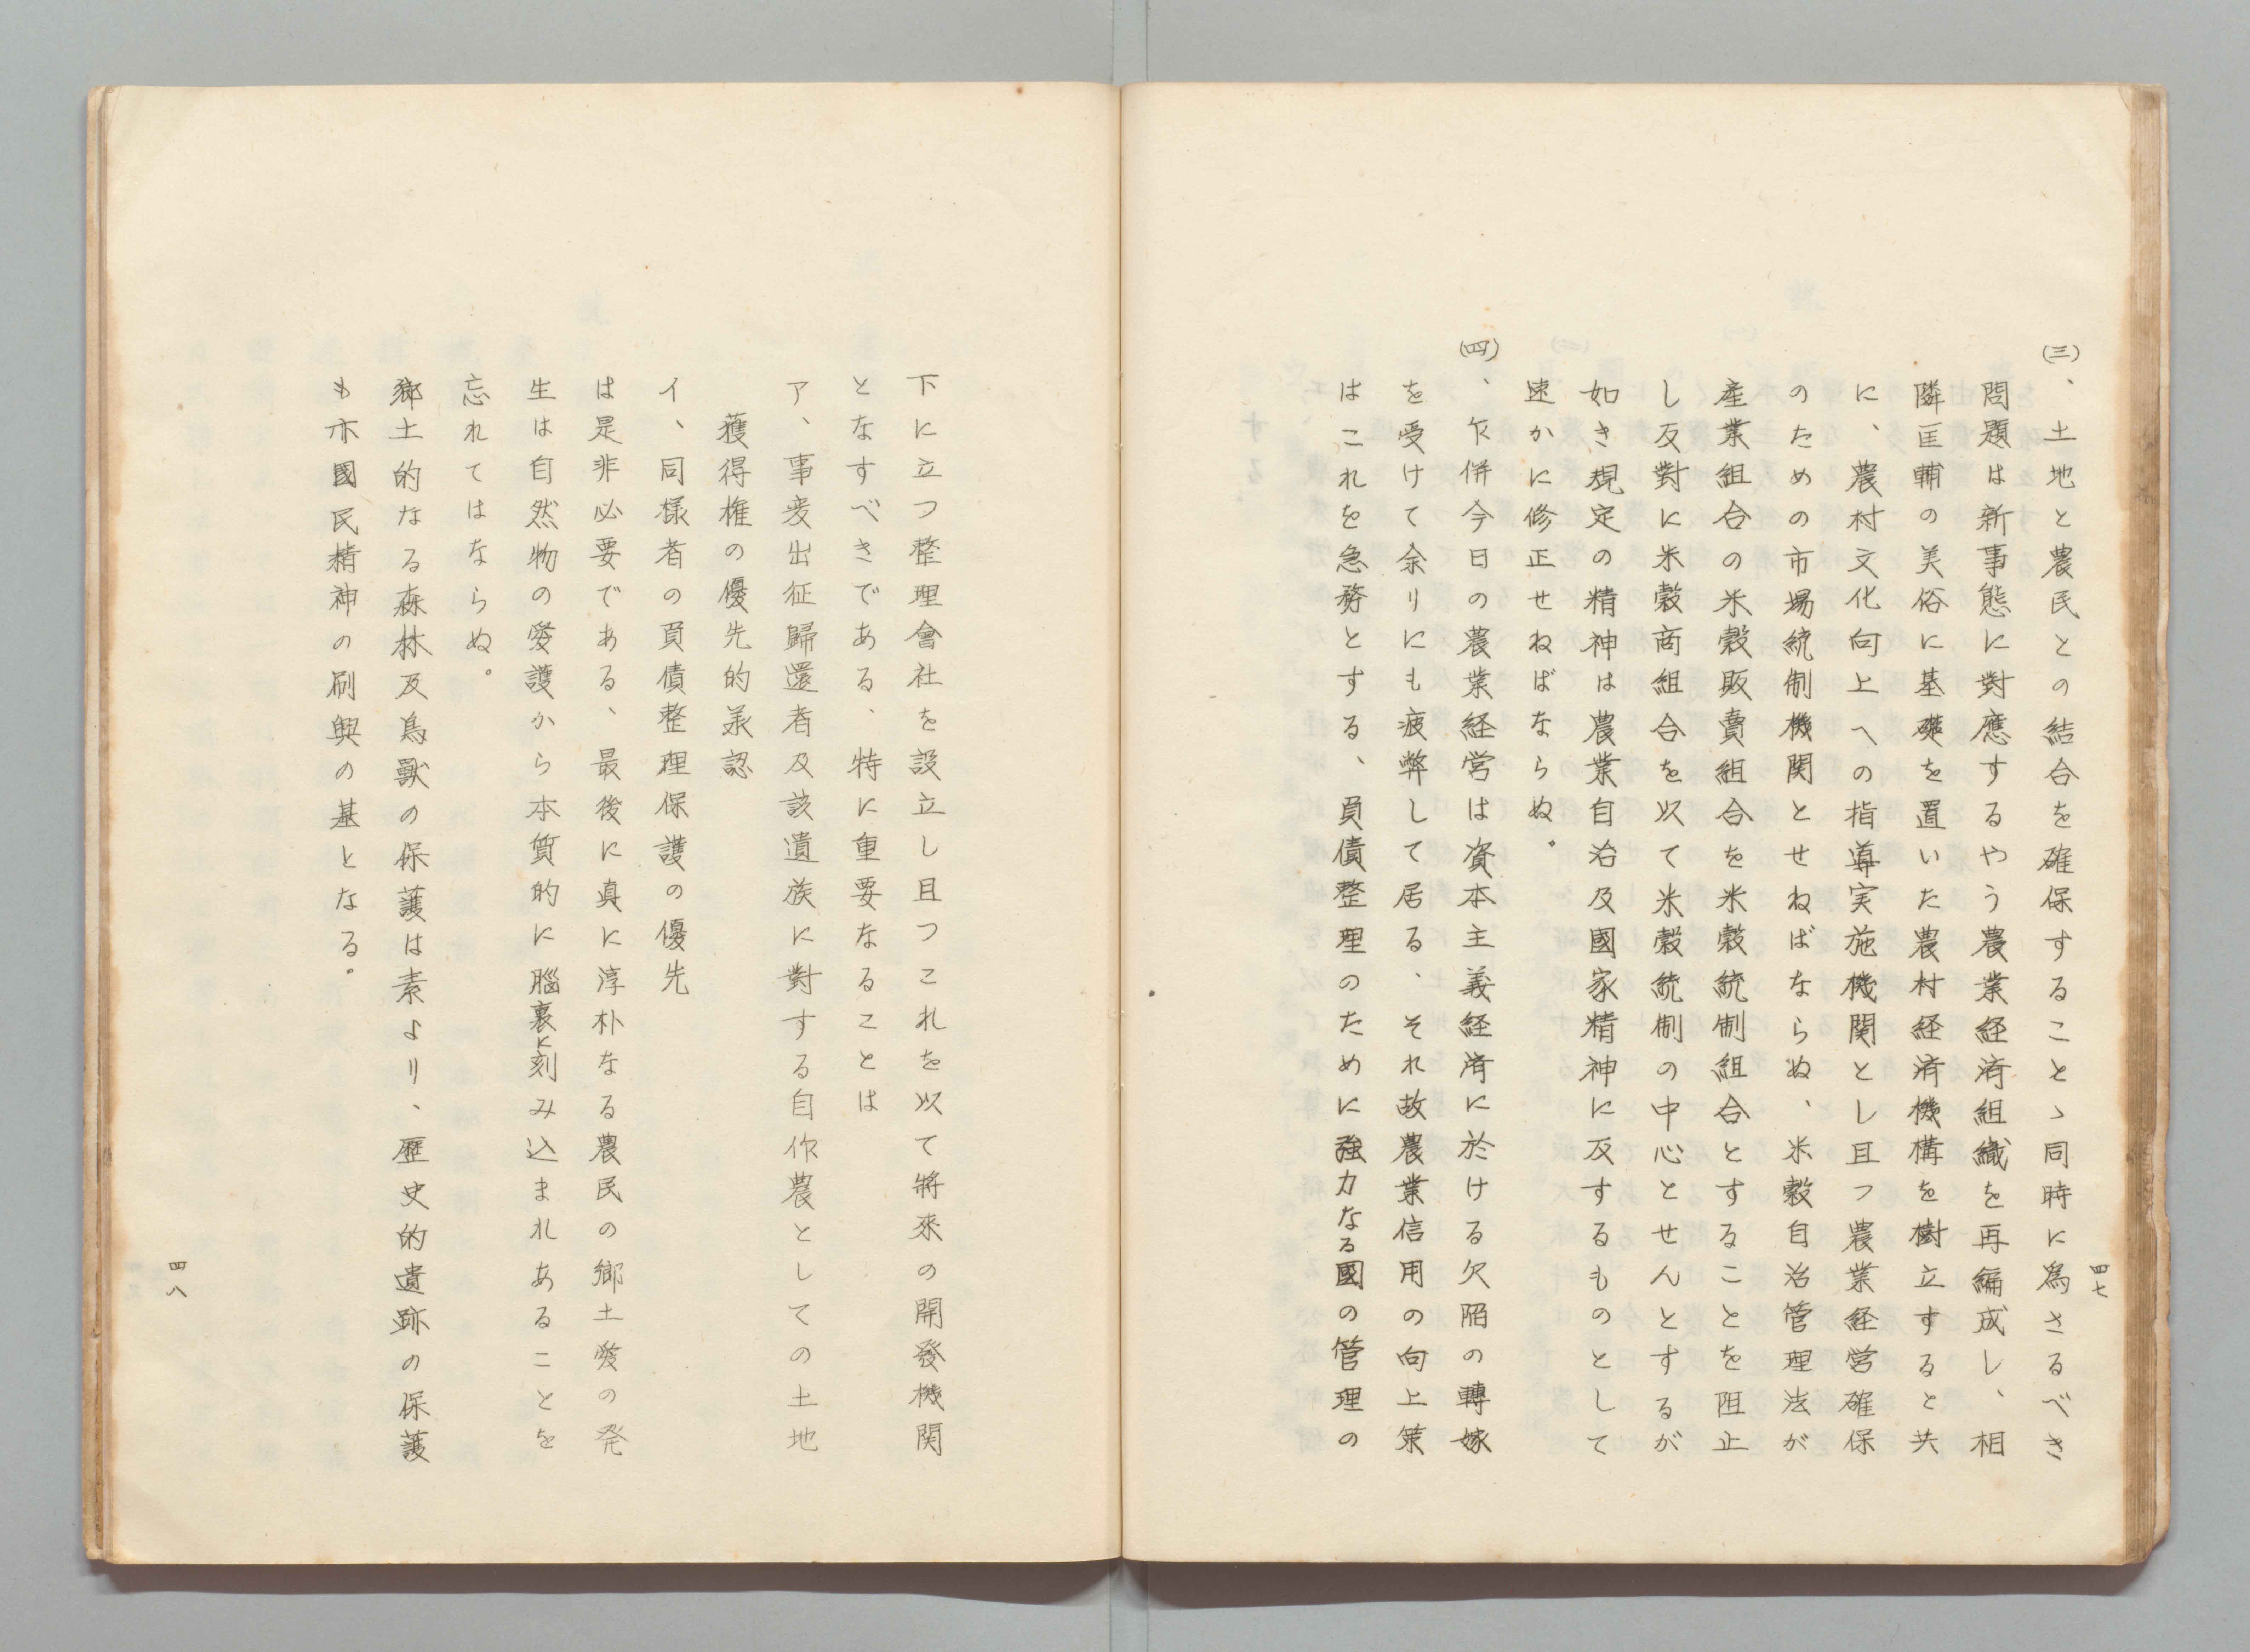 四七
(三)、土地と農民との結合を確保することゝ同時に為さるべき
問題は新事態に對應するやう農業経済組織を再編成し、相
隣匡輔の美俗に基礎を置いた農村経済機構を樹立すると共
に、農村文化向上への指導実施機関とし且つ農業経営確保
のための市場統制機関とせねばならぬ、米穀自治管理法が
産業組合の米穀販賣組合を米穀統制組合とすることを阻止
し反對に米穀商組合を以て米穀統制の中心とせんとするが
如き規定の精神は農業自治及國家精神に反するものとして
速かに修正せねばならぬ。
(四)、乍併今日の農業経営は資本主義経済に於ける欠陥の轉嫁
を受けて余りにも疲弊して居る、それ故農業信用の向上策
はこれを急務とする、負債整理のために強力なる國の管理の
下に立つ整理會社を設立し且つこれを以て將來の開發機関
となすべきである、特に重要なることは
ア、事変出征歸還者及該遺族に對する自作農としての土地
獲得権の優先的承認
イ、同様者の負債整理保護の優先
は是非必要である、最後に真に淳朴なる農民の郷土愛の発
生は自然物の愛護から本質的に腦裏に刻み込まれあることを
忘れてはならぬ。
郷土的なる森林及鳥獸の保護は素より、歴史的遺跡の保護
も亦國民精神の刷興の基となる。
四八